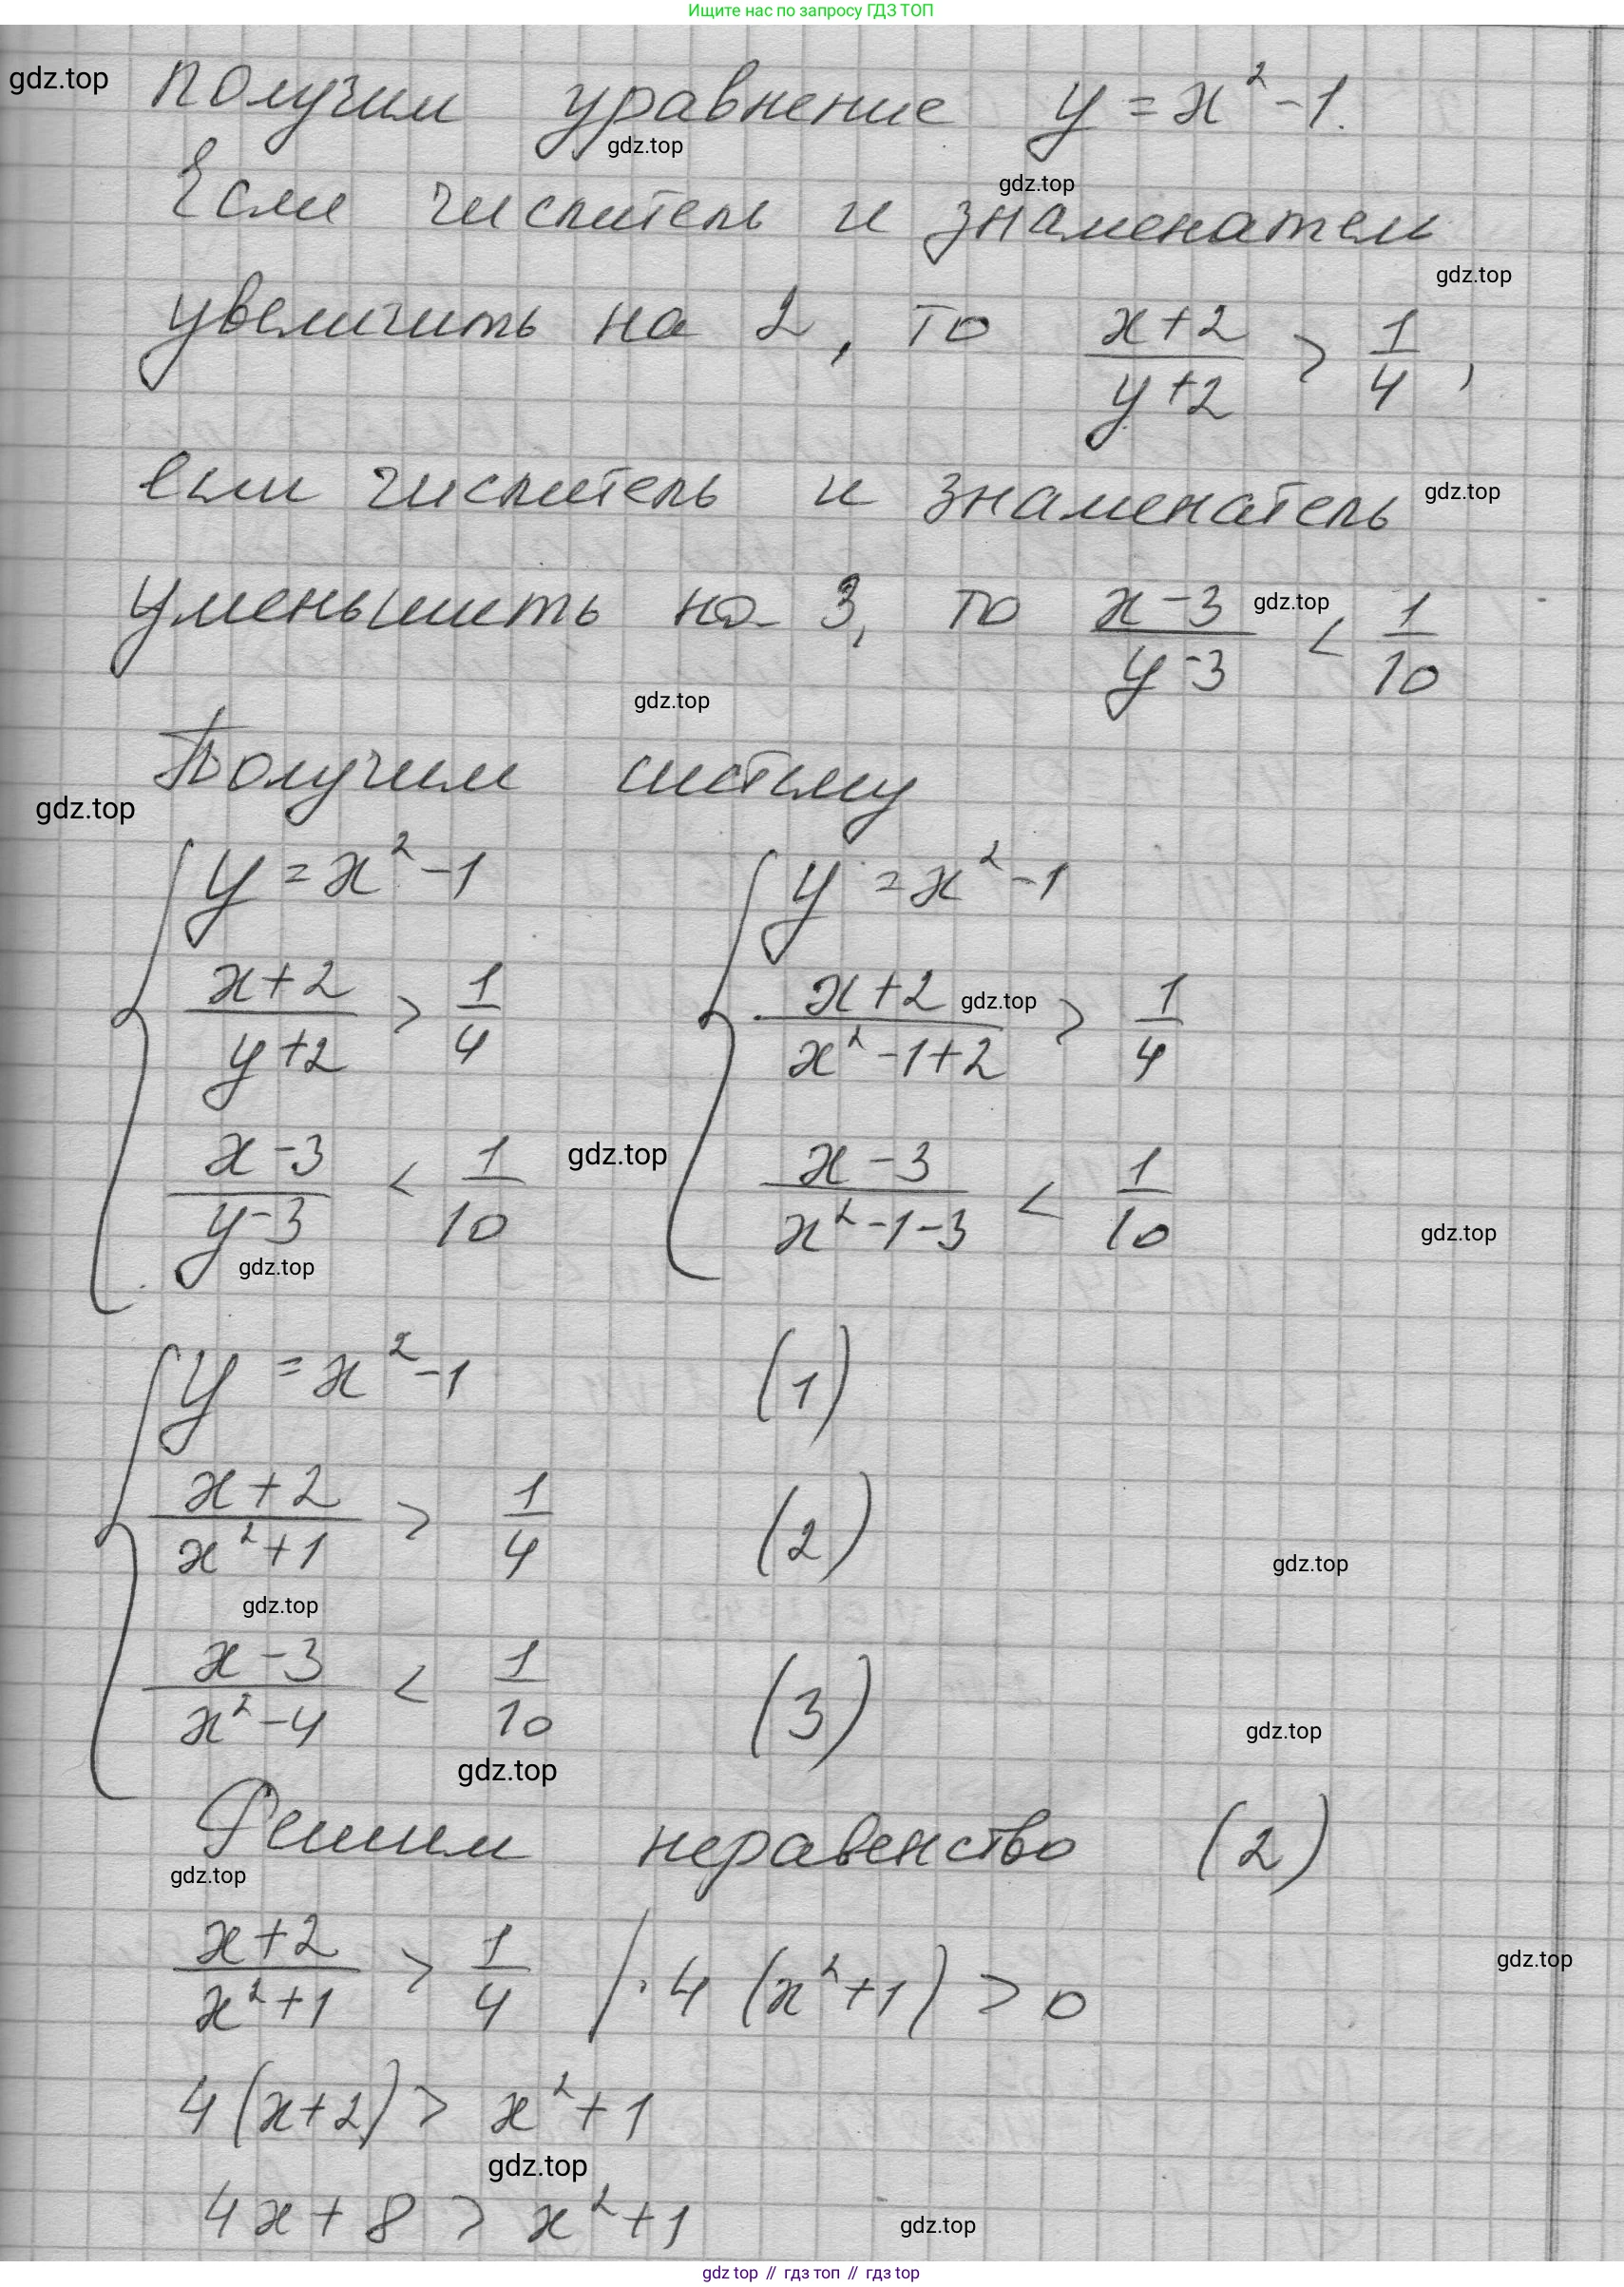 Ищите нас по запросу ГДЗ ТОП
gdz.top
Получим уравнение y = x² - 1.
gdz.top
gdz.top
Если числитель и знаменатель
gdz.top
увеличить на 2, то (x+2)/(y+2) > 1/4,
если числитель и знаменатель
gdz.top
уменьшить на 3, то (x-3)/(y-3) < 1/10
gdz.top
gdz.top
Получим систему
gdz.top
{ y = x² - 1 { y = x² - 1
(x+2)/(y+2) > 1/4 (x+2)/(x²-1+2) > 1/4
gdz.top
(x-3)/(y-3) < 1/10 (x-3)/(x²-1-3) < 1/10
gdz.top
gdz.top
gdz.top
{ y = x² - 1 (1)
(x+2)/(x²+1) > 1/4 (2)
gdz.top
gdz.top
(x-3)/(x²-4) < 1/10 (3)
gdz.top
gdz.top
Решим неравенство (2)
gdz.top
(x+2)/(x²+1) > 1/4 /·4(x²+1) > 0
gdz.top
4(x+2) > x²+1
gdz.top
4x+8 > x²+1
gdz.top
gdz top // гдз топ // гдз top